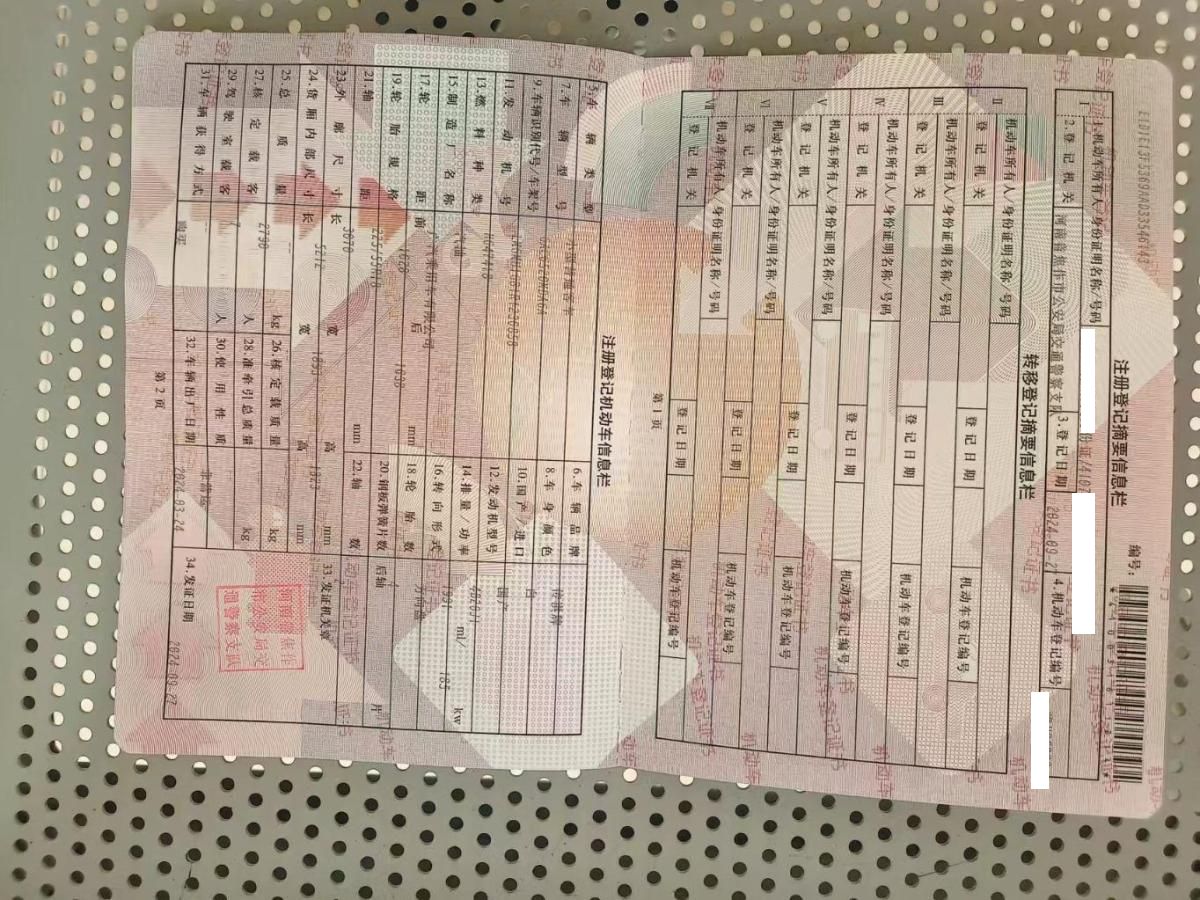 注册登记摘要信息栏
编号：
Ⅰ
1.机动车所有人/身份证明名称/号码
2.登记机关
河南省焦作市公安局交通警察支队
3.登记日期
2024-09-27
4.机动车登记编号
转移登记摘要信息栏
Ⅱ
机动车所有人/身份证明名称/号码
登记机关
登记日期
机动车登记编号
Ⅲ
机动车所有人/身份证明名称/号码
登记机关
登记日期
机动车登记编号
Ⅳ
机动车所有人/身份证明名称/号码
登记机关
登记日期
机动车登记编号
Ⅴ
机动车所有人/身份证明名称/号码
登记机关
登记日期
机动车登记编号
Ⅵ
机动车所有人/身份证明名称/号码
登记机关
登记日期
机动车登记编号
Ⅶ
机动车所有人/身份证明名称/号码
登记机关
登记日期
机动车登记编号
第1页
注册登记机动车信息栏
5.车辆类型 小型普通客车
6.车辆品牌 传祺牌
7.车辆型号
8.车身颜色 白
9.车辆识别代号/车架号
10.国产/进口 国产
11.发动机号
12.发动机型号
13.燃料种类 汽油
14.排量/功率 1991 ml/ 185 kw
15.制造厂名称 广汽乘用车有限公司
16.转向形式 方向盘
17.轮距 前 1620 后 1638 mm
18.轮胎数 4
19.轮胎规格 225/55R18
20.钢板弹簧片数 后轴 片
21.轴距 3070 mm
22.轴数 2
23.外廓尺寸 长 5212 宽 1893 高 1823 mm
33.发证机关章
24.货厢内部尺寸 长 宽 高 mm
25.总质量 2790 kg
26.核定载质量 kg
27.核定载客 7 人
28.准牵引总质量 kg
29.驾驶室载客 人
30.使用性质 非营运
31.车辆获得方式 购买
32.车辆出厂日期 2024-03-24
34.发证日期 2024-09-27
河南省焦作
市公安局交
通警察支队
第2页